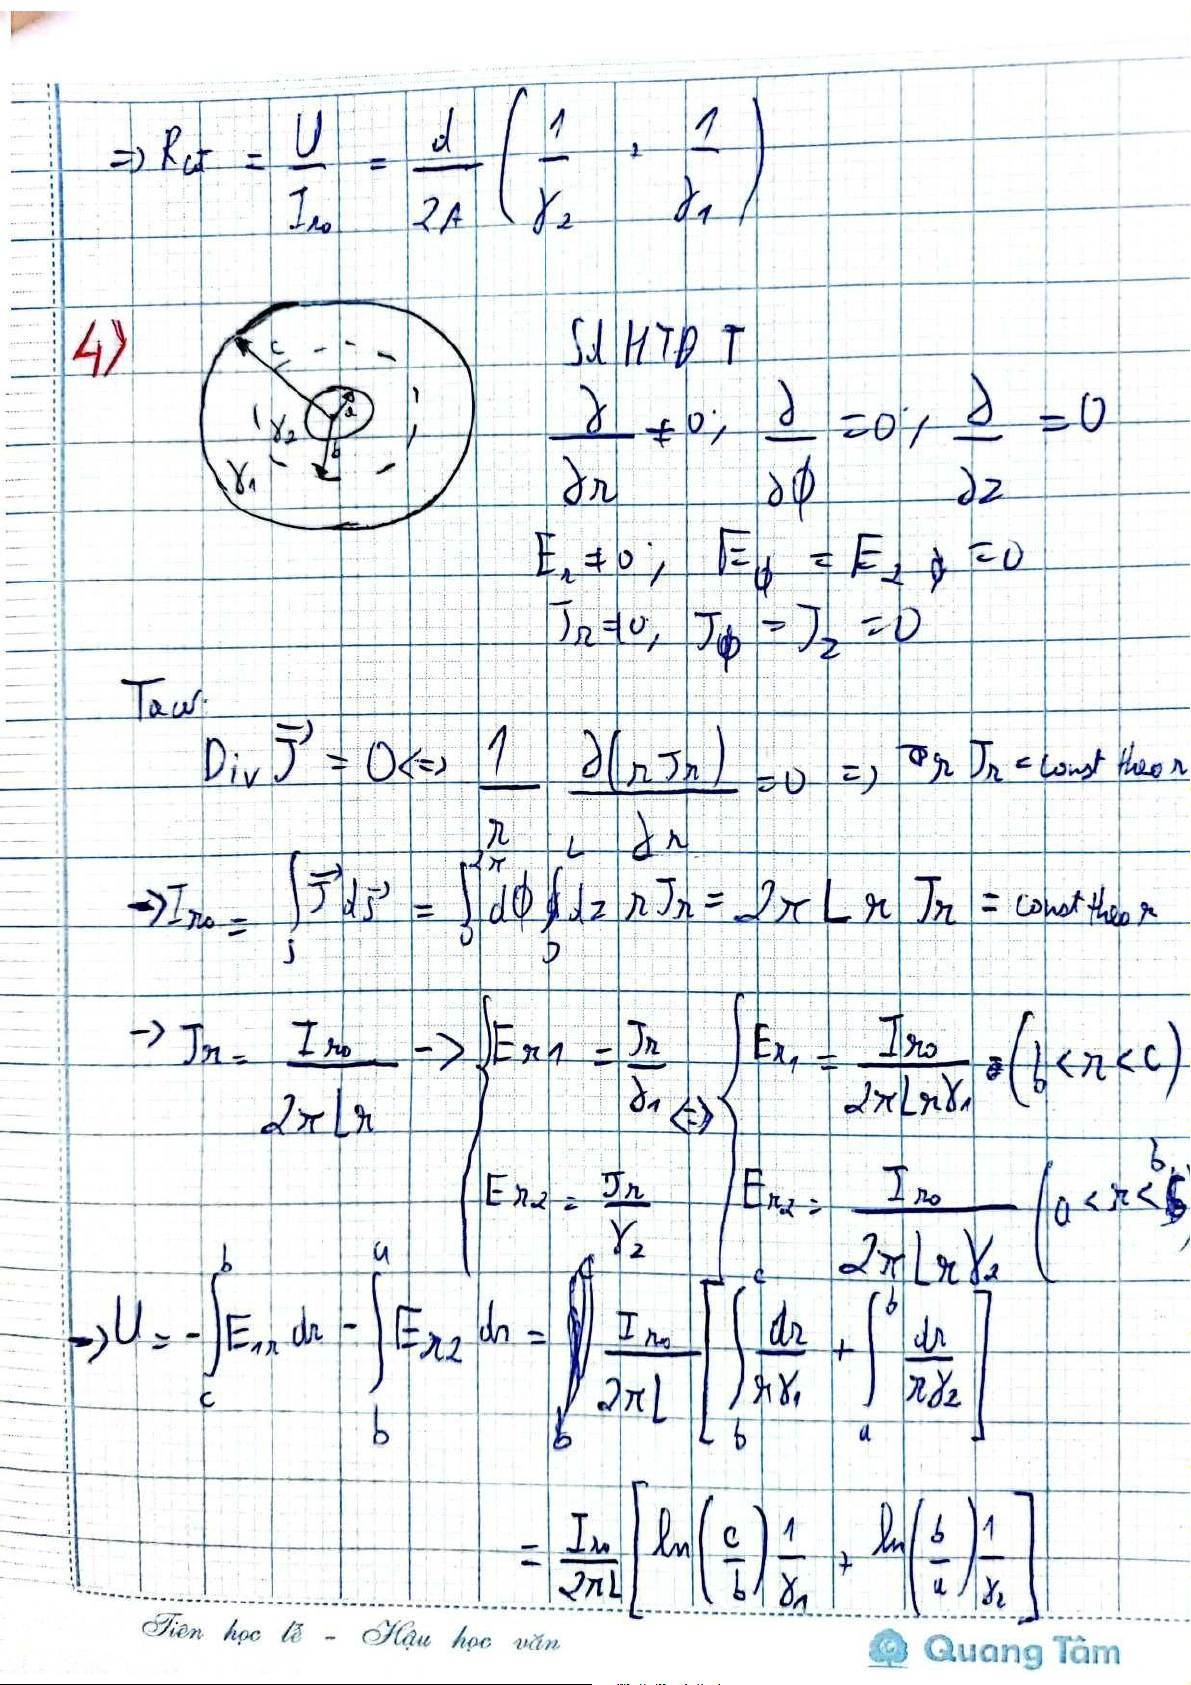 => Rcđ = U/Iro = d/2A (1/γ2 + 1/γ1)
4)
c
a
γ2
b
γ1
Sd HTĐ T
∂/∂r ≠ 0; ∂/∂ϕ = 0; ∂/∂z = 0
Er ≠ 0; Eϕ = Ez = 0
Jr ≠ 0; Jϕ = Jz = 0
Ta có:
Div J⃗ = 0 <=> 1/r ∂(rJr)/∂r = 0 => r Jr = const theo r
-> Iro = ∫_S J⃗ dS⃗ = ∫_0^2π dϕ ∫_0^L dz r Jr = 2π L r Jr = const theo r
-> Jr = Iro/2πLr -> { Er1 = Jr/γ1 <=> { Er1 = Iro/2πLrγ1 (b < r < c)
Er2 = Jr/γ2 Er2 = Iro/2πLrγ2 (a < r < b)
-> U = -∫_c^b E1r dr - ∫_b^a Er2 dr = Iro/2πL [∫_b^c dr/rγ1 + ∫_a^b dr/rγ2]
= Iro/2πL [ln(c/b) 1/γ1 + ln(b/a) 1/γ2]
Tiên học lễ - Hậu học văn
Quang Tâm